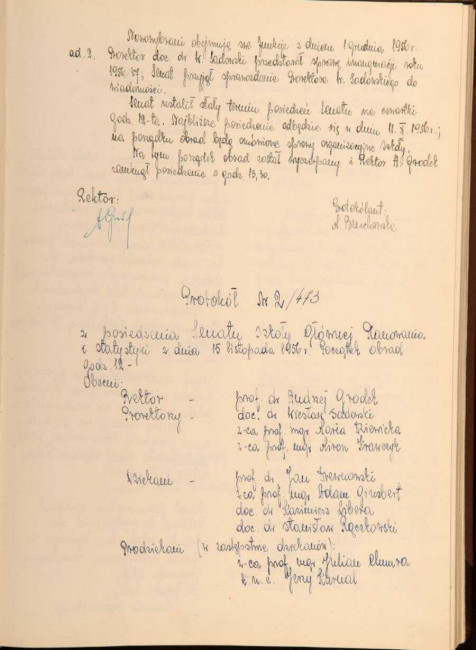 Nowowybrani obejmują swe funkcje z dniem 1 grudnia 1956r.
ad. 2. Prorektor doc. dr W. Sadowski przedstawił sprawę inauguracji roku
1956/57; Senat przyjął sprawozdanie Prorektora W. Sadowskiego do
wiadomości.
Senat ustalił stały termin posiedzeń Senatu na czwartki
godz. 12-ta. Najbliższe posiedzenie odbędzie się w dniu 11. X. 1956r.;
na porządku obrad będą omówione sprawy organizacyjne szkoły.
Na tym porządek obrad został wyczerpany i Rektor A. Grodek
zamknął posiedzenie o godz. 13,30.
Rektor:
Protokólant:
A.
Protokół Nr 2/413
z posiedzenia Senatu Szkoły Głównej Planowania
i Statystyki z dnia 15 listopada 1956r. Początek obrad
godz. 12-
Obecni:
Rektor - prof. dr Andrzej Grodek
Prorektorzy - doc. dr Wiesław Sadowski
z-ca prof. mgr Maria
z-ca prof. mgr Miron Krawczyk
Dziekani - prof. dr Jan Drewnowski
z-ca prof. mgr Adam Ginsbert
doc. dr Kazimierz Libera
doc. dr Stanisław Rączkowski
Prodziekani (w zastępstwie dziekanów):
z-ca prof. mgr Julian
k. n. e. Jerzy Kurnal